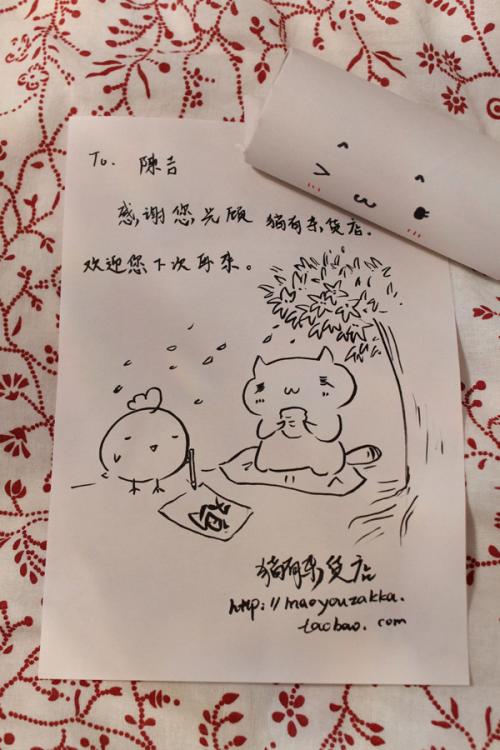 To. 陳吉
感谢您光顾 猫有杂货店.
欢迎您下次再来。
猫有杂货店
http://maoyouzakka.
taobao.com